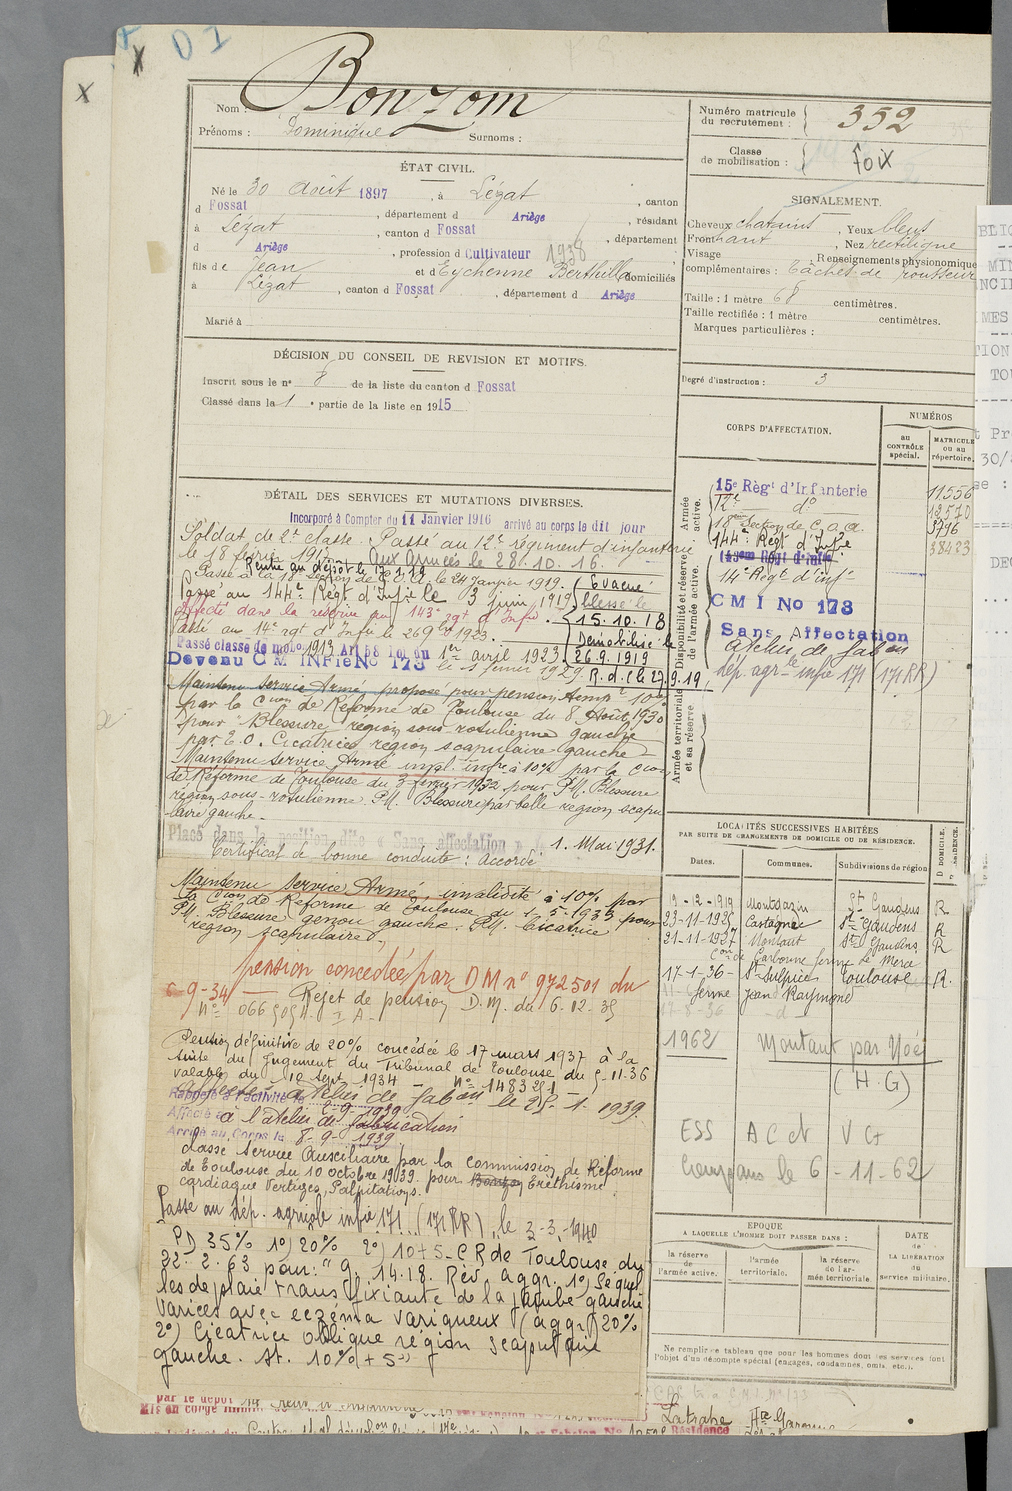 D I
X
X
Nom : Bonzom
Prénoms : Dominique Surnoms :
Numéro matricule du recrutement : 352
Classe de mobilisation : Foix
ÉTAT CIVIL.
Né le 30 Août 1897, à Lézat, canton
d Fossat, département d Ariège, résidant
à Lézat, canton d Fossat, département
d Ariège, profession d Cultivateur 1938
fils de Jean et d Eychenne Berthille domiciliés
à Lézat, canton d Fossat, département d Ariège
Marié à
SIGNALEMENT.
Cheveux chatains, Yeux bleus
Front haut, Nez rectiligne
Visage Renseignements physionomiques
complémentaires : Tâches de rousseur
Taille : 1 mètre 68 centimètres.
Taille rectifiée : 1 mètre centimètres.
Marques particulières :
Degré d'instruction : 3
DÉCISION DU CONSEIL DE REVISION ET MOTIFS.
Inscrit sous le n° 8 de la liste du canton d Fossat
Classé dans la 1 e partie de la liste en 1915
CORPS D'AFFECTATION.
NUMÉROS
au CONTRÔLE spécial.
MATRICULE ou au répertoire.
Armée active.
Disponibilité et réserve de l'armée active.
Armée territoriale et sa réserve
15e Règt d'Infanterie 11556
12e do 12570
18eme Section de C.O.A. 3796
144e Régt d'Infie 38423
143em Régt d'Infie
14e Régt d'inf
C M I No 173
Sans Affectation
atelier de fabon
dép. agrle infie 171 (171 RR)
DÉTAIL DES SERVICES ET MUTATIONS DIVERSES.
Incorporé à Compter du 11 Janvier 1916 arrivé au corps le dit jour
Soldat de 2e classe. Passé au 12e régiment d'infanterie
le 18 février 1917. aux Armées le 28.10.16.
Rentré au dépôt le
Passé à la 18e Section de C.O.A. le 24 Janvier 1919. Evacué
Passé au 144e Régt d'Infie le 3 juin 1919 blessé le
Affecté dans la réserve au 143e rgt d'Infie. 15.10.18
Passé au 14e rgt d'Infie le 1923. Démobilisé le
Passé classe de mob. 1913 Art 58 Loi du 1er avril 1923. 26.9.1919
Devenu C M INFie No 173 le février 1929 R.d.C le 27.9.19
Maintenu Service Armé, proposé pour pension temp. 10%
par la Cion de Réforme de Toulouse du 8 Août 1930
pour "Blessure région sous rotulienne gauche
par E.O. Cicatrice région scapulaire gauche
Maintenu service Armé inval. infre à 10% par la Cion
de Réforme de Toulouse du 3 février 1932 pour P.M. Blessure
région sous-rotulienne. P.M. Blessure par balle région scapu
laire gauche.
Placé dans la position dite « Sans affectation » 1. Mai 1931.
Certificat de bonne conduite : Accordé
Maintenu Service Armé, invalidité à 10% par
la Cion de Réforme de Toulouse du 1-5-1933 pour
P.M. Blessure genou gauche. P.M. Cicatrice
région scapulaire
pension concédée par D M n° 972501 du
6-9-34 Rejet de pension D.M. du 6.02.35
Pension définitive de 20% concédée le 17 mars 1937 à la
suite du Jugement du Tribunal de Toulouse du 5-11-36
valable du 10 Sept. 1934
Affecté atelier de fabon le 25-1-1939
Rappelé à l'activité le 6-9-1939
Affecté à l'atelier de fabrication
Arrivé au Corps le 8-9-1939
Classé Service Auxiliaire par la commission de Réforme
de Toulouse du 10 octobre 1939 pour Eréthisme
cardiaque Vertiges, Palpitations.
Passé au dép. agricole infie 171 (171 RR), le 3-3-1940
PD 35% 1°) 20% 2°) 10+5 - C R de Toulouse du
22.2.63 pour : " G. 14.18. Rev aggr. 1°) Séquel
les de plaie transfixiante de la jambe gauche
varices avec eczéma variqueux (aggr) 20%
2°) Cicatrice oblique région scapulaire
gauche. St. 10% + 5 "
LOCALITÉS SUCCESSIVES HABITÉES
PAR SUITE DE CHANGEMENTS DE DOMICILE OU DE RÉSIDENCE.
Dates. Communes. Subdivisions de région D. DOMICILE. R. RÉSIDENCE.
9-2-1919 Montgazin St Gaudens R
23-11-1925 Castagnac St Gaudens R
21-11-1927 Montaut St Gaudens R
Con de Carbonne ferme Le Merce
17-1-36 St Sulpice Toulouse R.
ferme Jean Raymond
1962 Montaut par Noé
(H.G)
ESS A C et V Ct
le 6-11-62
EPOQUE
A LAQUELLE L'HOMME DOIT PASSER DANS :
la réserve de l'armée active.
l'armée territoriale.
la réserve de l'armée territoriale.
DATE de LA LIBÉRATION du service militaire.
Ne remplir ce tableau que pour les hommes dont les services font
l'objet d'un décompte spécial (engagés, condamnés, omis, etc.).
par le dépôt 14
Latrape Hte Garonne
Résidence